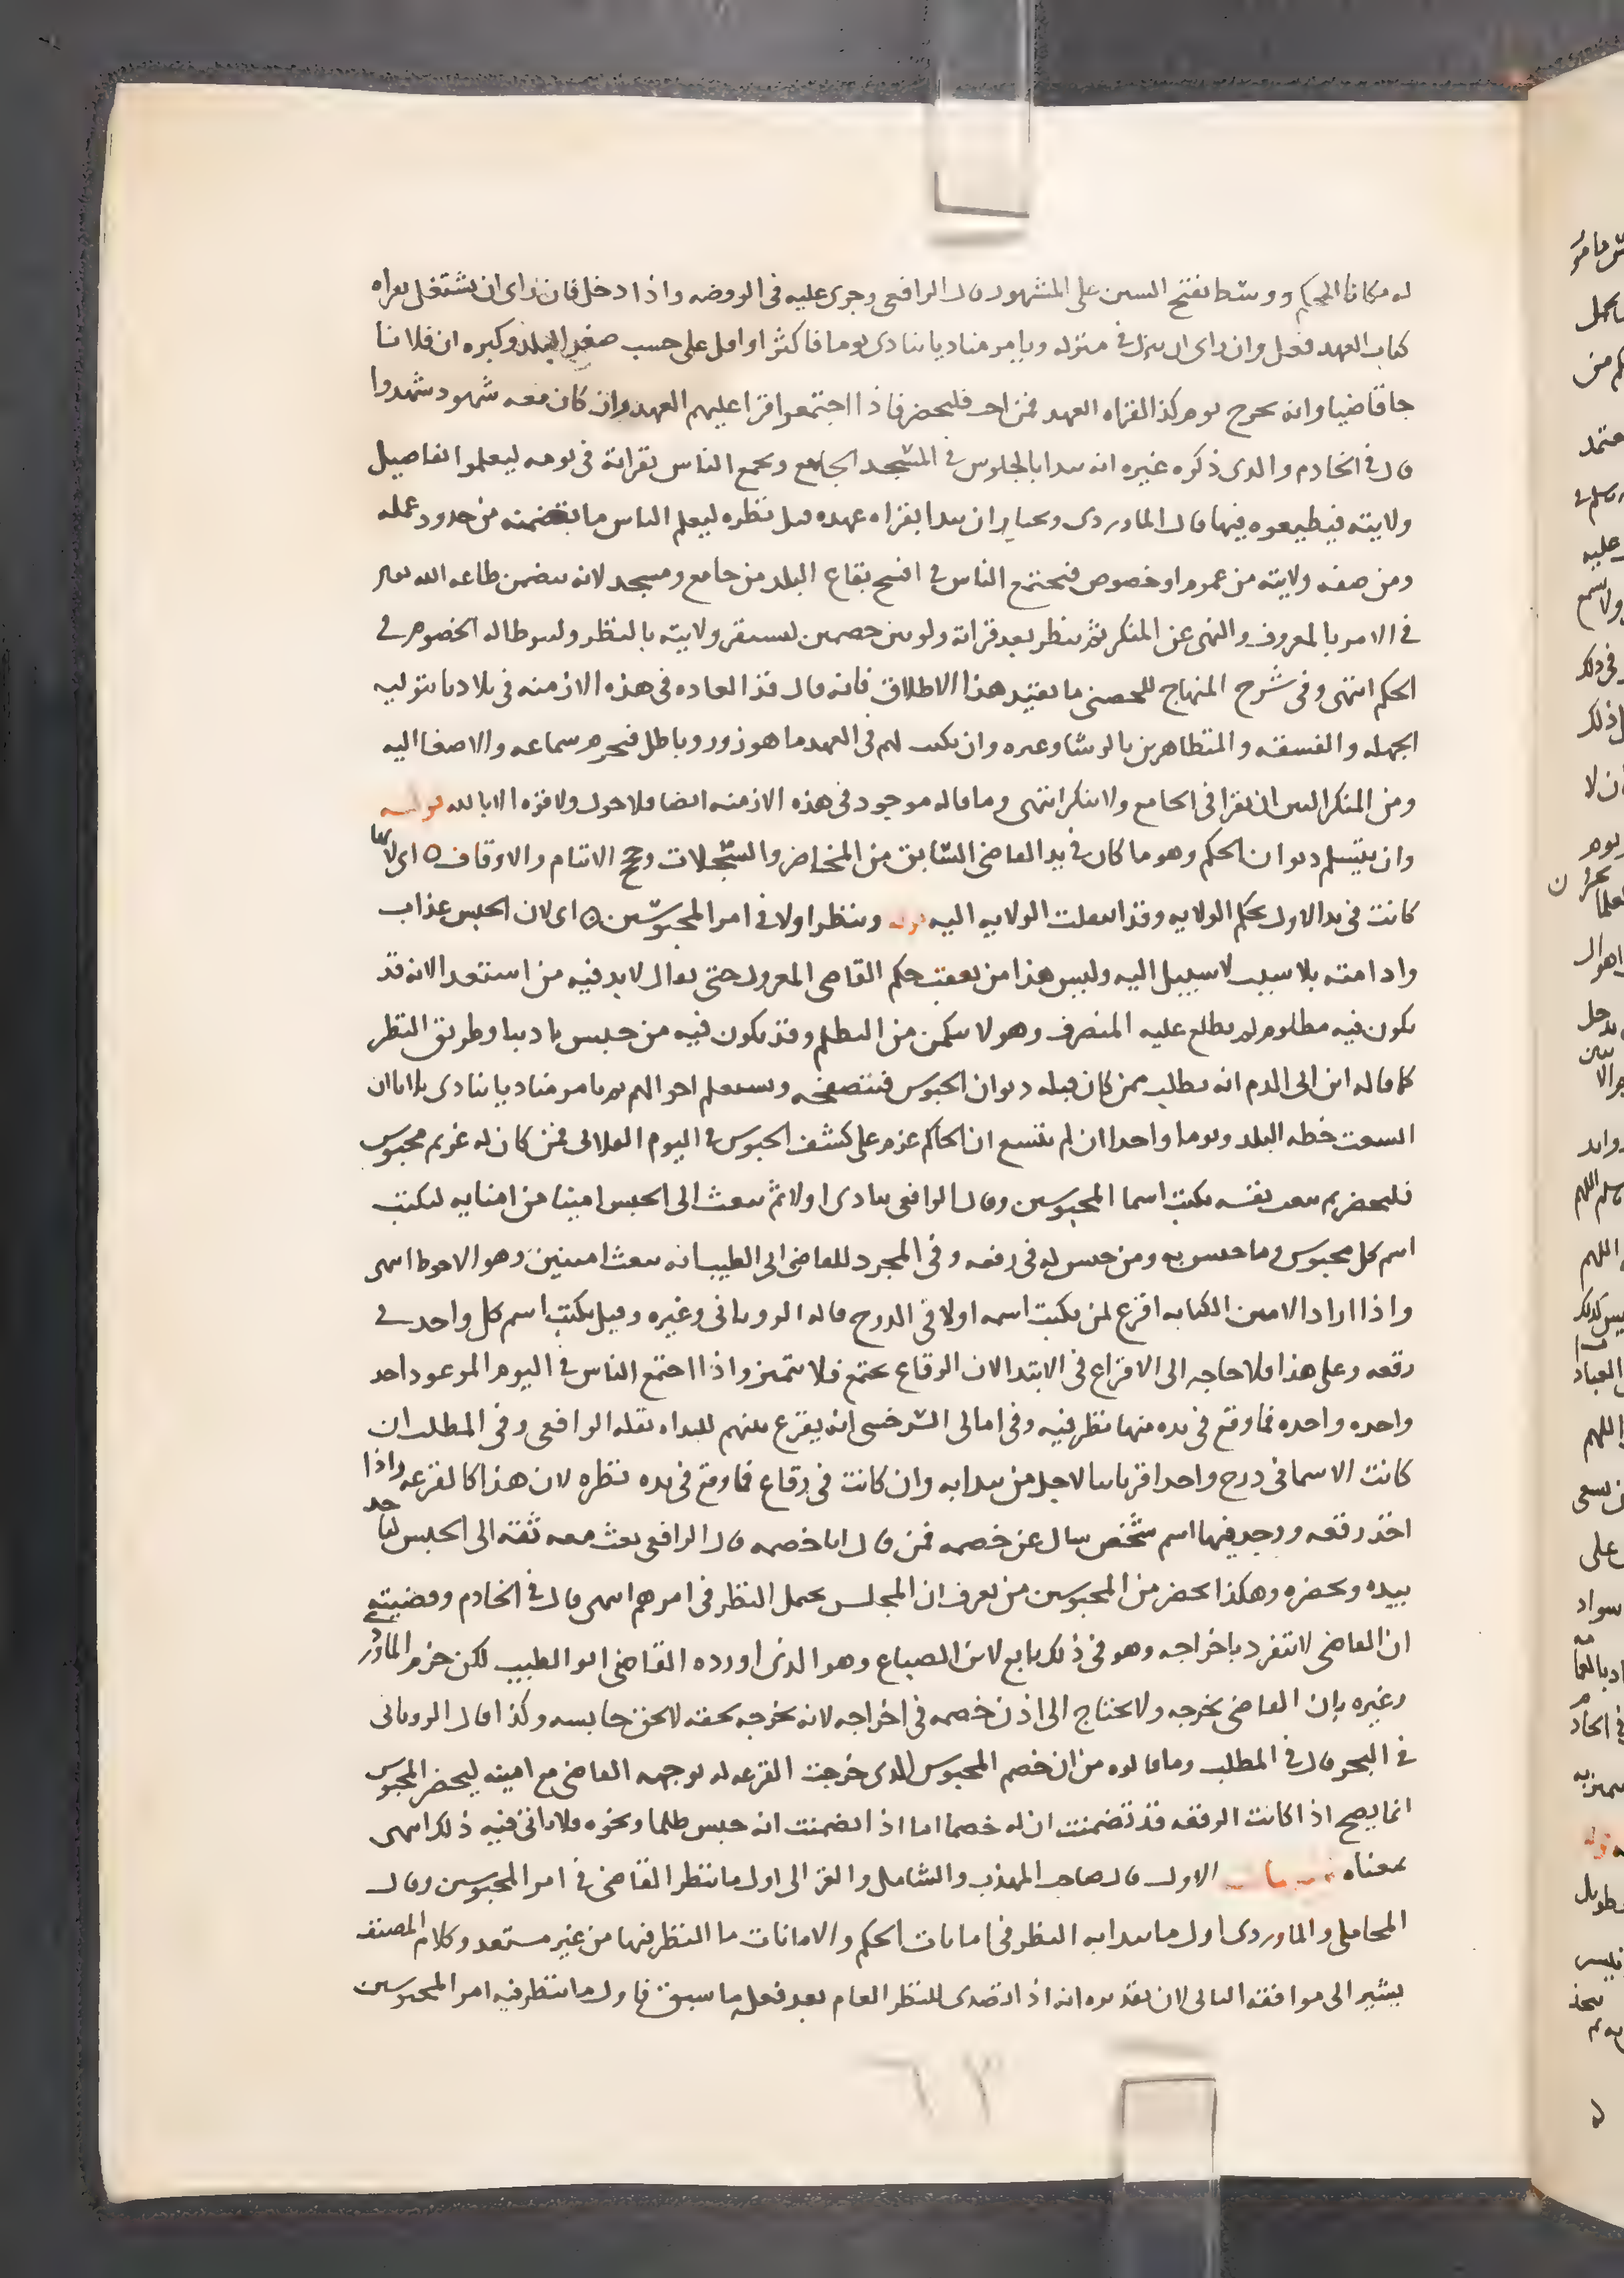 له مكانا للحكم ووسط بفتح السين على المشهور قال الرافعي وجرى عليه في الروضه واذا دخل فان راى ان يشتغل بقراه
كتاب العهد فعل وان راى ان ينزل في منزله ويامر مناديا ينادى يوما فاكثر او اقل على حسب صغر البلد وكبره ان فلانا
جا قاضيا وانه يخرج يوم كذا لقراه العهد فمن احب فليحضر فاذا اجتمعوا قرا عليهم العهد وان كان معه شهود شهدوا
قال في الخادم والذى ذكره غيره انه يبدا بالجلوس في المسجد الجامع ويجمع الناس بقراته في يومه ليعلموا تفاصيل
ولايته فيطيعوه فيها قال الماوردى ويختار ان يبدا بقراه عهده قبل نظره ليعلم الناس ما تضمنه من حدود عمله
ومن صفه ولايته من عموم او خصوص فيجتمع الناس في افسح بقاع البلد من جامع ومسجد لانه يتضمن طاعه الله تعالى
في الامر بالمعروف والنهى عن المنكر ثم ينظر بعد قراته ولو بين خصمين ليستقر ولايته بالنظر وليوطا له الخصوم في
الحكم انتهى وفى شرح المنهاج للحصنى ما يقيد هذا الاطلاق فانه قال قد العاده في هذه الازمنه في بلادنا بتوليه
الجهله والفسقه والمتظاهرين بالرشا وغيره وان يكتب لهم في العهد ما هو زور وباطل فيحرم سماعه والاصغا اليه
ومن المنكر البين ان يقرا في الجامع ولا ينكر انتهى وما قاله موجود في هذه الازمنه ايضا فلا حول ولا قوه الا بالله قوله
وان يتسلم ديوان الحكم وهو ما كان في يد القاضى السابق من المحاضر والسجلات وحجج الايتام والاوقاف ٥ اى لانها
كانت في يد الاول بحكم الولايه وقد انتقلت الولايه اليه قوله وينظر اولا في امر المحبوسين ٥ اى لان الحبس عذاب
وادامته بلا سبب لا سبيل اليه وليس هذا من تعقب حكم القاضى المعزول حتى يقال لا بد فيه من استعدا لانه قد
يكون فيه مظلوم لم يطلع عليه المنصرف وهو لا يتمكن من التظلم وقد يكون فيه من حبس تاديبا وطريق النظر
كما قاله ابن ابى الدم انه يطلب ممن كان قبله ديوان الحبوس فيتصفحه ويستعلم احوالهم ثم يامر مناديا ينادى ثلاثا ان
اتسعت خطه البلد ويوما واحدا ان لم يتسع ان الحاكم عزم على كشف الحبوس في اليوم الفلانى فمن كان له غريم محبوس
فليحضر ثم يبعث ثقه يكتب اسما المحبوسين وقال الرافعى ينادى اولا ثم يبعث الى الحبس امينا من امنايه ليكتب
اسم كل محبوس وما حبس به ومن حبس له في رقعه وفي المجرد للقاضى ابى الطيب انه يبعث امينين وهو الاحوط انتهى
واذا اراد الامين الكتابه اقرع لمن يكتب اسمه اولا في الدرج قاله الرويانى وغيره وقيل يكتب اسم كل واحد في
رقعه وعلى هذا فلا حاجه الى الاقراع في الابتدا لان الرقاع تجتمع فلا تتميز واذا اجتمع الناس في اليوم الموعود اخذ
واحده واحده فما وقع في يده منها نظر فيه وفى امالى السرخسى انه يقرع بينهم للبداه نقله الرافعى وفى المطلب ان
كانت الاسما في درج واحد اقرع ثانيا لاجل من يبدا به وان كانت في رقاع فما وقع في يده نظره لان هذا كالقرعه واذا
اخذ رقعه ووجد فيها اسم شخص سال عن خصمه فمن قال انا خصمه قال الرافعى بعث معه ثقه الى الحبس لياخذ
بيده ويحضره وهكذا يحضر من المحبوسين من يعرف ان المجلس يحتمل النظر في امرهم انتهى قال في الخادم وقضيته
ان القاضى لا يتفرد باخراجه وهو في ذلك تابع لابن الصباغ وهو الذى اورده القاضى ابو الطيب لكن جزم الماوردى
وغيره بان القاضى يخرجه ولا يحتاج الى اذن خصمه في اخراجه لانه يخرجه بحقه لا بحق حابسه وكذا قال الرويانى
في البحر قال في المطلب وما قالوه من ان خصم المحبوس الذى خرجت القرعه له يوجهه القاضى مع امينه ليحضر المحبوس
انما يصح اذا كانت الرقعه قد تضمنت ان له خصما اما اذا تضمنت انه حبس ظلما ونحوه فلا ياتى فيه ذلك انتهى
بمعناه تنبيهات الاول قال صاحب المهذب والشامل والغزالى اول ما ينظر القاضى في امر المحبوسين وقال
المحاملى والماوردى اول ما يبدا به النظر في امانات الحكم والامانات ما النظر فيها من غير مستعد وكلام المصنف
يشير الى موافقه الثانى لان تقديره انه اذا تصدى للنظر العام بعد فعل ما سبق فاول ما ينظر فيه امر المحبوسين
٦٣